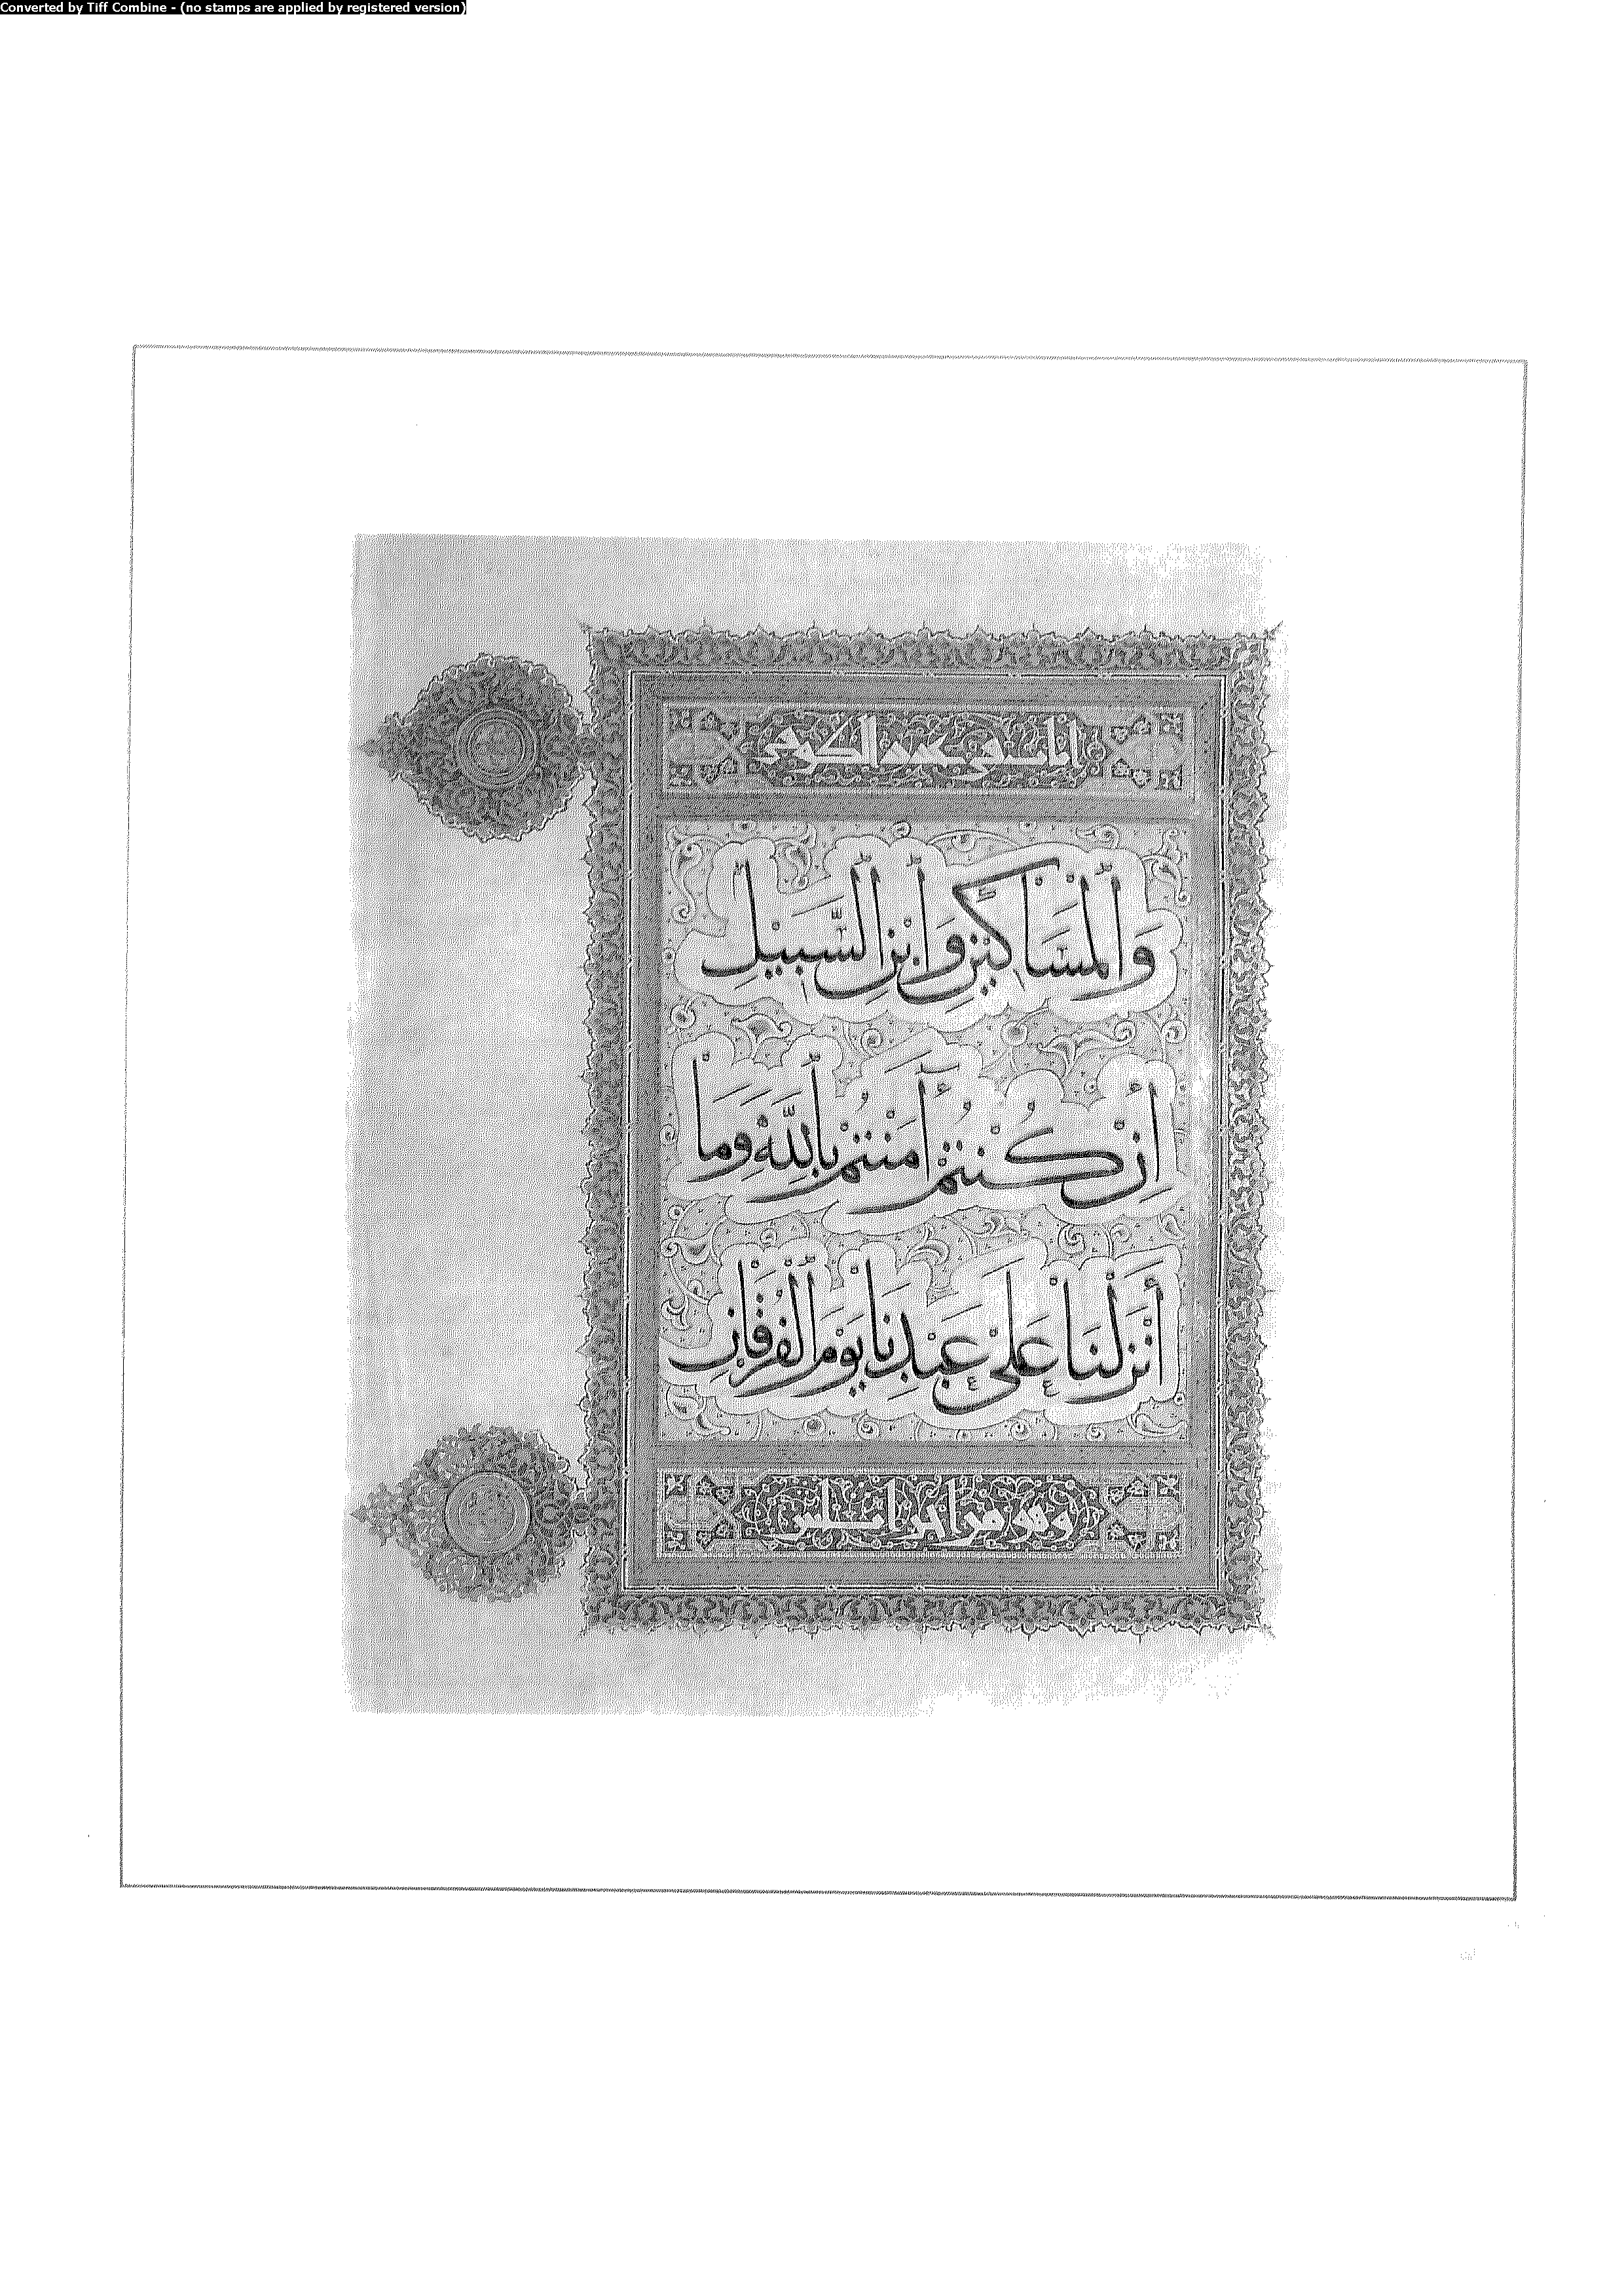 Converted by Tiff Combine - (no stamps are applied by registered version)
وَالْمَسَاكِينِ وَابْنِ السَّبِيلِ
إِنْ كُنْتُمْ آمَنْتُمْ بِاللَّهِ وَمَا
أَنْزَلْنَا عَلَىٰ عَبْدِنَا يَوْمَ الْفُرْقَانِ